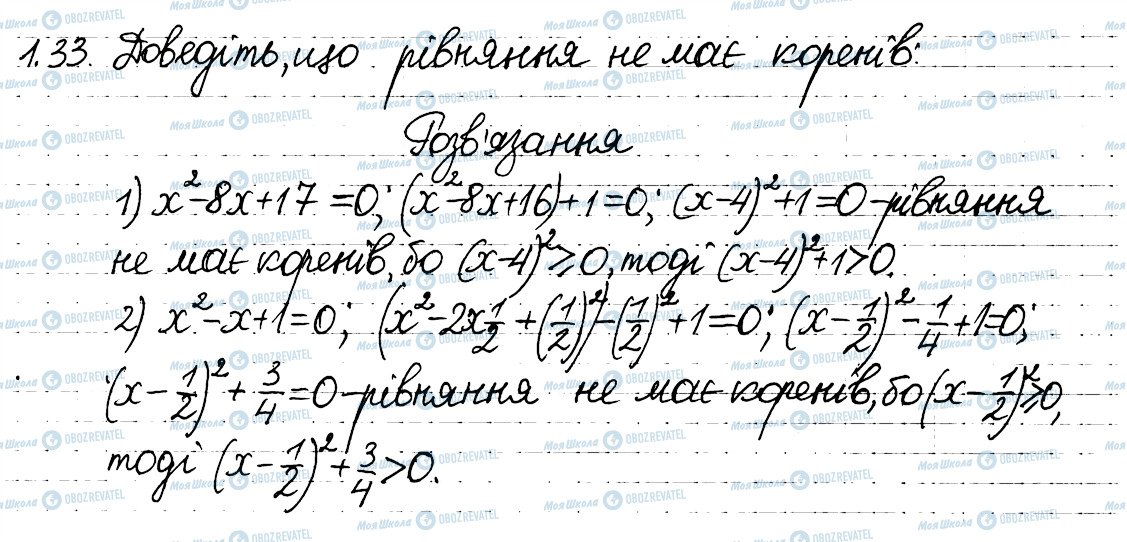 1.33. Доведіть, що рівняння не має коренів:
Розв'язання
1) x²-8x+17=0; (x²-8x+16)+1=0; (x-4)²+1=0 - рівняння
не має коренів, бо (x-4)²≥0, тоді (x-4)²+1>0.
2) x²-x+1=0; (x²-2x1/2+(1/2)²)-(1/2)²+1=0; (x-1/2)²-1/4+1=0;
(x-1/2)²+3/4=0 - рівняння не має коренів, бо (x-1/2)²≥0,
тоді (x-1/2)²+3/4>0.